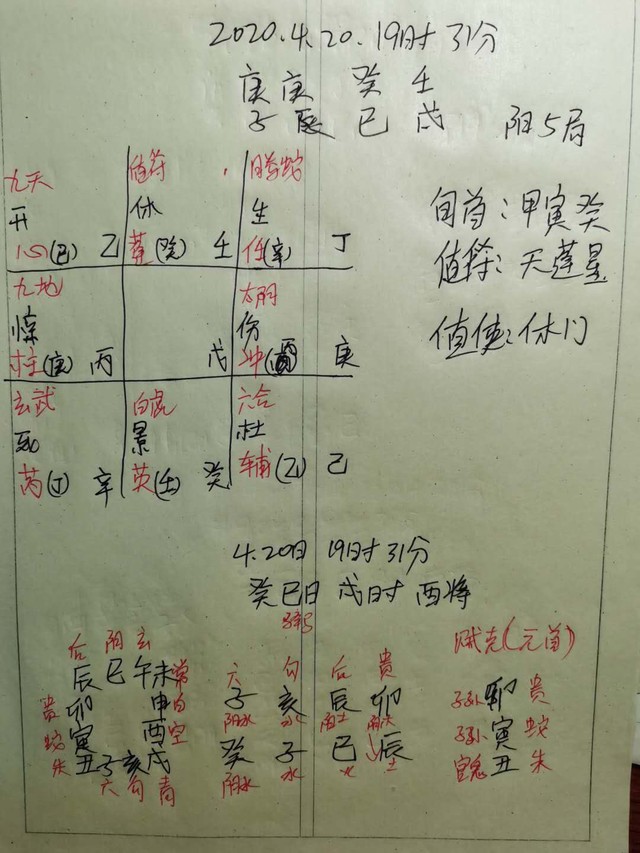 2020.4.20.19时31分
庚庚 癸 壬
子辰 巳 戌 阳5局
九天 值符 螣蛇
开 休 生
心(己) 乙 蓬(癸) 壬 任(辛) 丁
九地 太阴
惊 伤
柱(庚) 丙 戊 冲(丙) 庚
玄武 白虎 六合
死 景 杜
芮(丁) 辛 英(壬) 癸 辅(乙) 己
旬首:甲寅癸
值符:天蓬星
值使:休门
4.20日 19时31分
癸巳日 戌时 酉将
后 阴 玄
辰 巳 午 未 常
贵 卯 申 白
蛇 寅 酉 空
朱 丑 子 亥 戌
六 勾 青
六 勾 后 贵
子 亥 辰 卯
阳水 水 阳土
癸 子 巳 辰
阴水 水 火 土
贼克(元首)
子孙 卯 贵
子孙 寅 蛇
官鬼 丑 朱